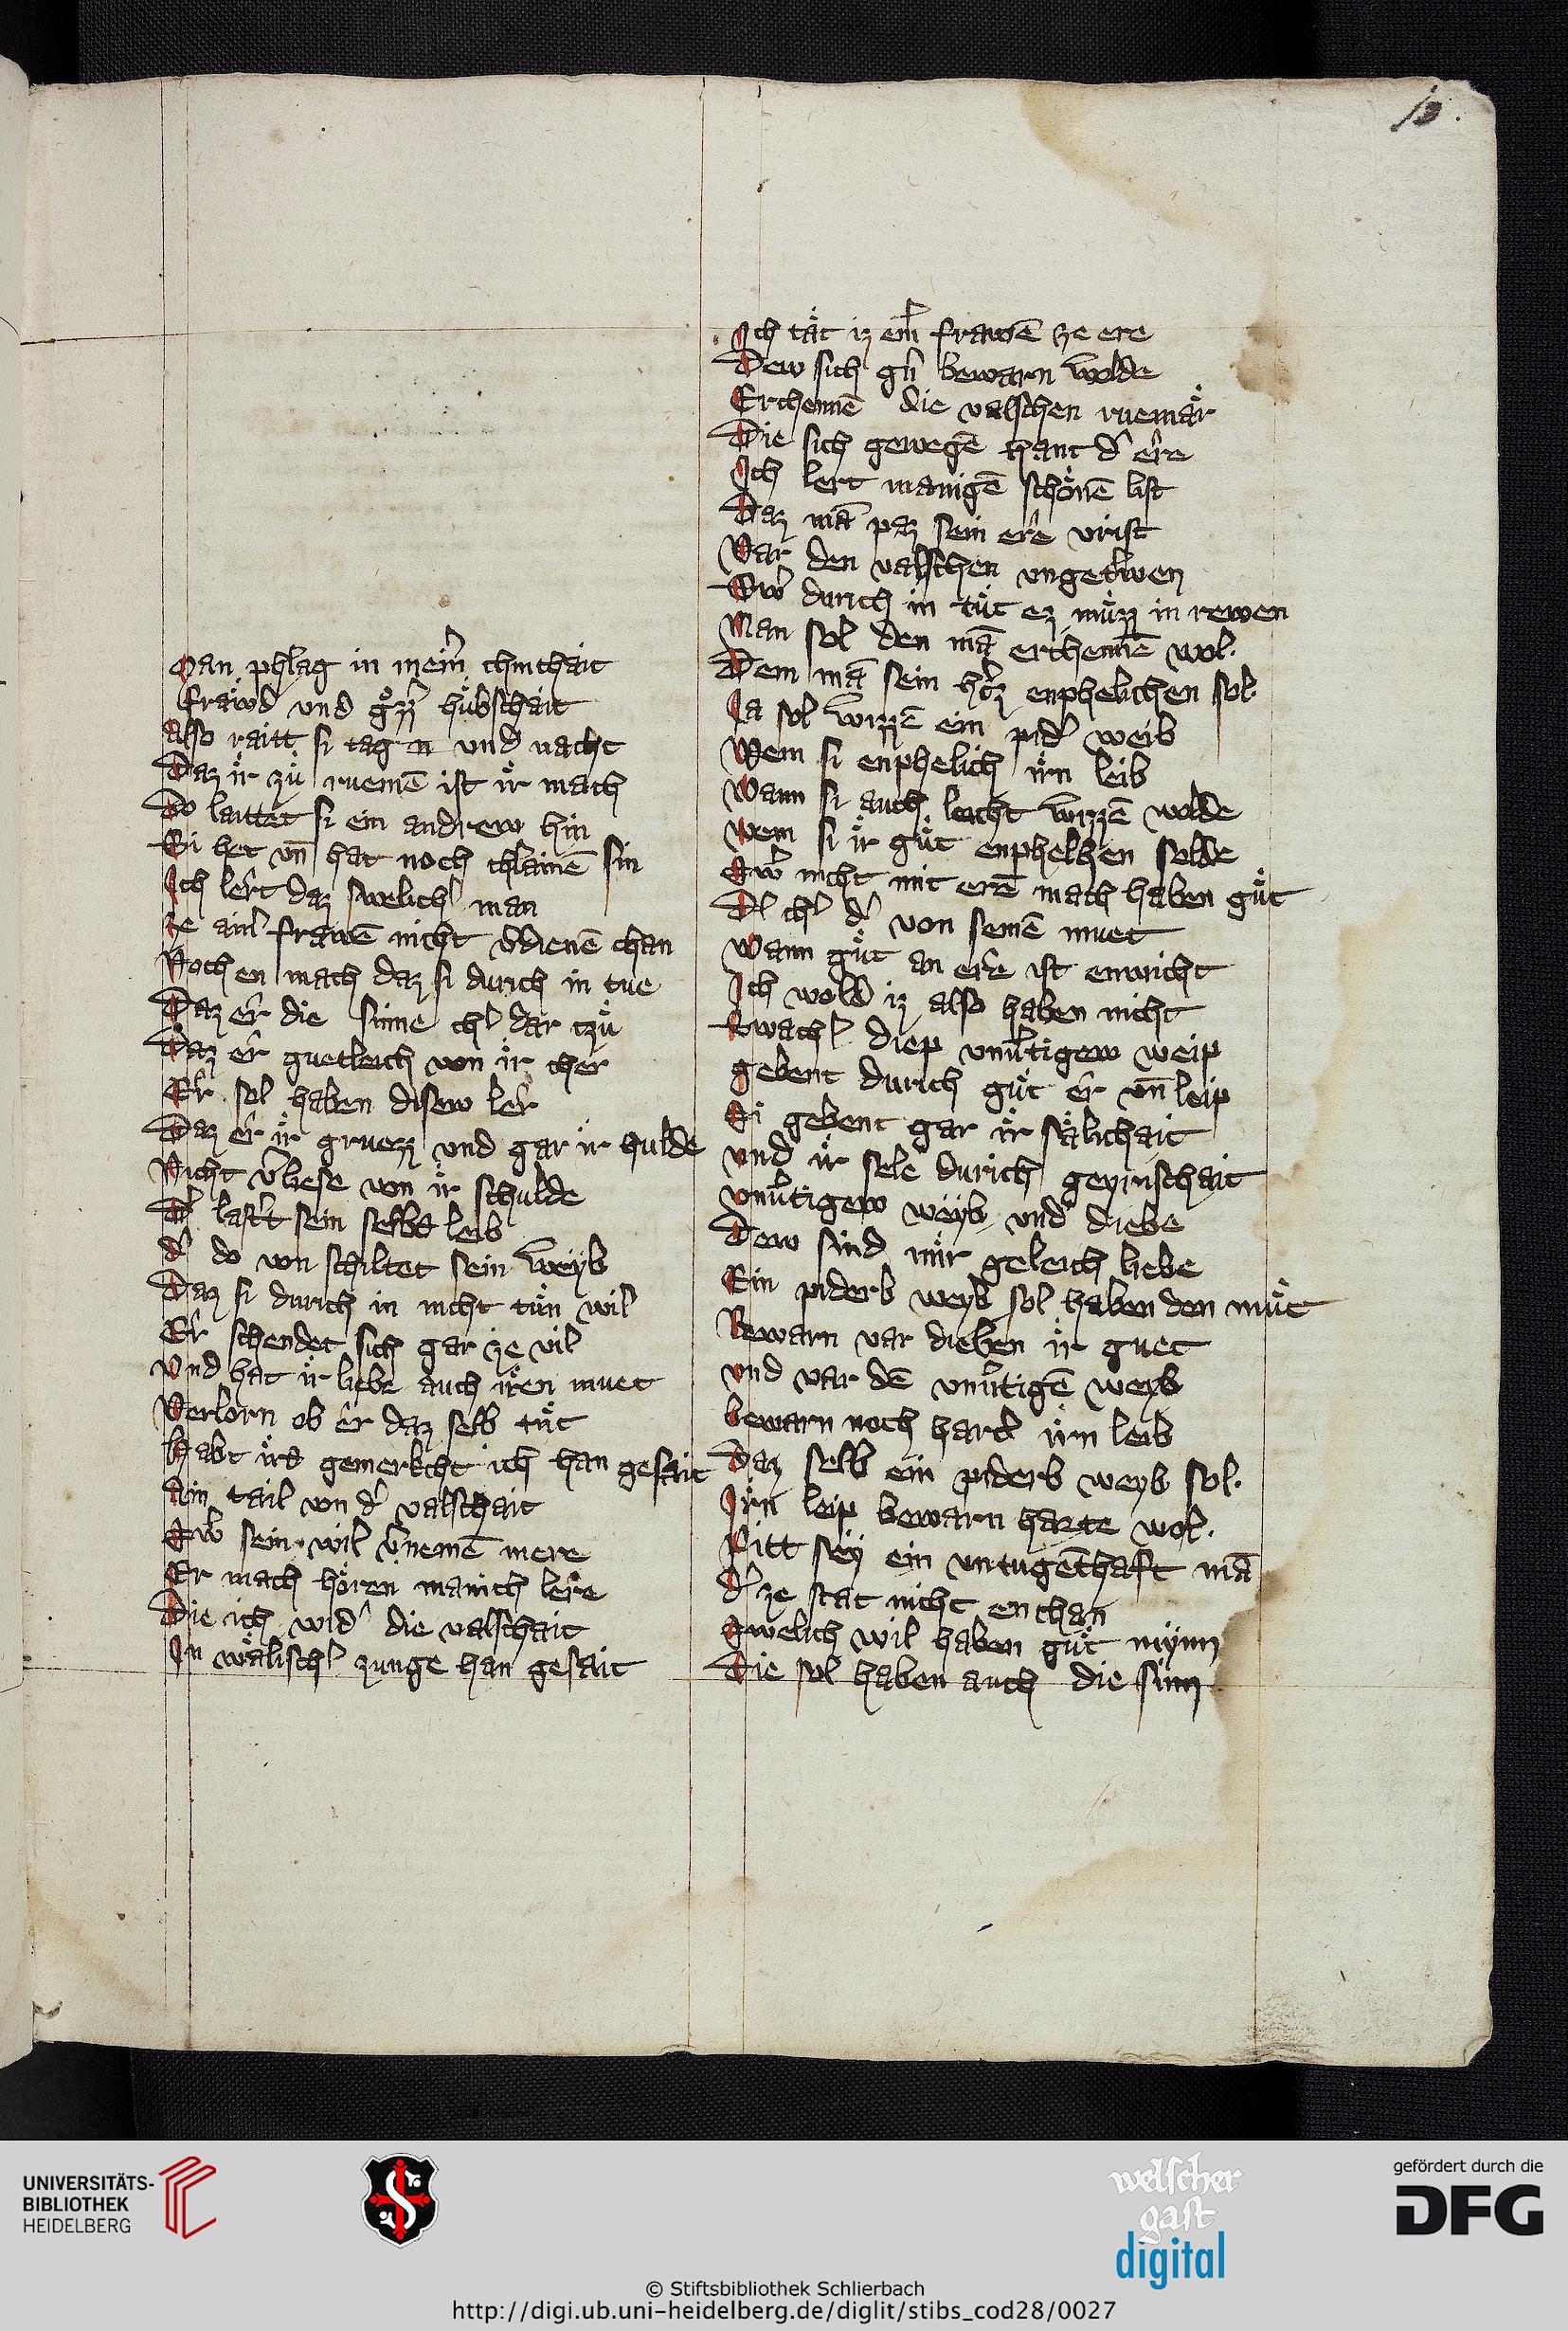 10.
Man phlag in meiner chinthait
frawd und gozz hubschait
Also raitt si tag n und nacht
Daz ir zu ruemē ist ir mach
Do lauttet si ein andrew hin
Si het vn̄ hat noch chlainē sin
Ich lert daz swelich man
Ze ainr frawē nicht vdienē chan
Noch en mach daz si durich in tue
Daz er die sinne cher dar tzu
Daz er guetleich von ir cher
Er sol haben disew ler
Daz er ir gruezz und gar ir hulde
Nicht vliese von ir schulde
Der lastert sein selbs leib
der do von schiltet sein weyb
Daz si durich in nicht tun wil
Er schendet sich gar ze vil
Und hat ir liebe auch iren muet
Verlorn ob er daz selb tut
Habt irs gemerkcht ich han gesait
Ain tail von der valschait
Swer sein wil vnemē mere
Er mach hören manich lere
Die ich wider die valschait
In wälischer zunge han gesait
Ich tät iz einer frawē ze ere
Dew sich gern bewarn wolde
Erchennē die valschen ruemär
Die sich gewegē hant der ere
Ich lert manigē schönē list
Daz mā paz sein ere vrist
Var den valschen ungetrwen
Swer durich in tut ez muzz in rewen
Man sol den mā erchennē wol.
Dem mā sein hertz enphelichen sol.
Ja sol wizzē ein pider weib
Wem si enphelich irn leib
Wann si auch leicht wizzē wolde
wem si ir gut enphelhen solde
Swer nicht mit erē mach haben gut
Der cher der von seinē muet
Wann gut an ere ist enwicht
Ich wold iz also haben nicht
Swacher diep unvertigew weip
gebent durich gut er vn̄ leip
Si gebent gar ir sälichait
und ir sele durich geyrischait
unvertigew weyb und diebe
Dew sind mir geleich liebe
Ein piderb weyb sol haben den mut
Bewarn var dieben ir guet
und var dē unvertigē weyb
bewarn noch hart irn leib
Daz selb ein piderb weyb sol.
Irn leip bewarn harte wol.
Pitt sey ein untugenthaft mā
der ze stat nicht enchan
Swelich wil haben gut mynn
Die sol haben auch die sinn
UNIVERSITÄTS-
BIBLIOTHEK
HEIDELBERG
S
welscher
gast
digital
gefördert durch die
DFG
© Stiftsbibliothek Schlierbach
http://digi.ub.uni-heidelberg.de/diglit/stibs_cod28/0027